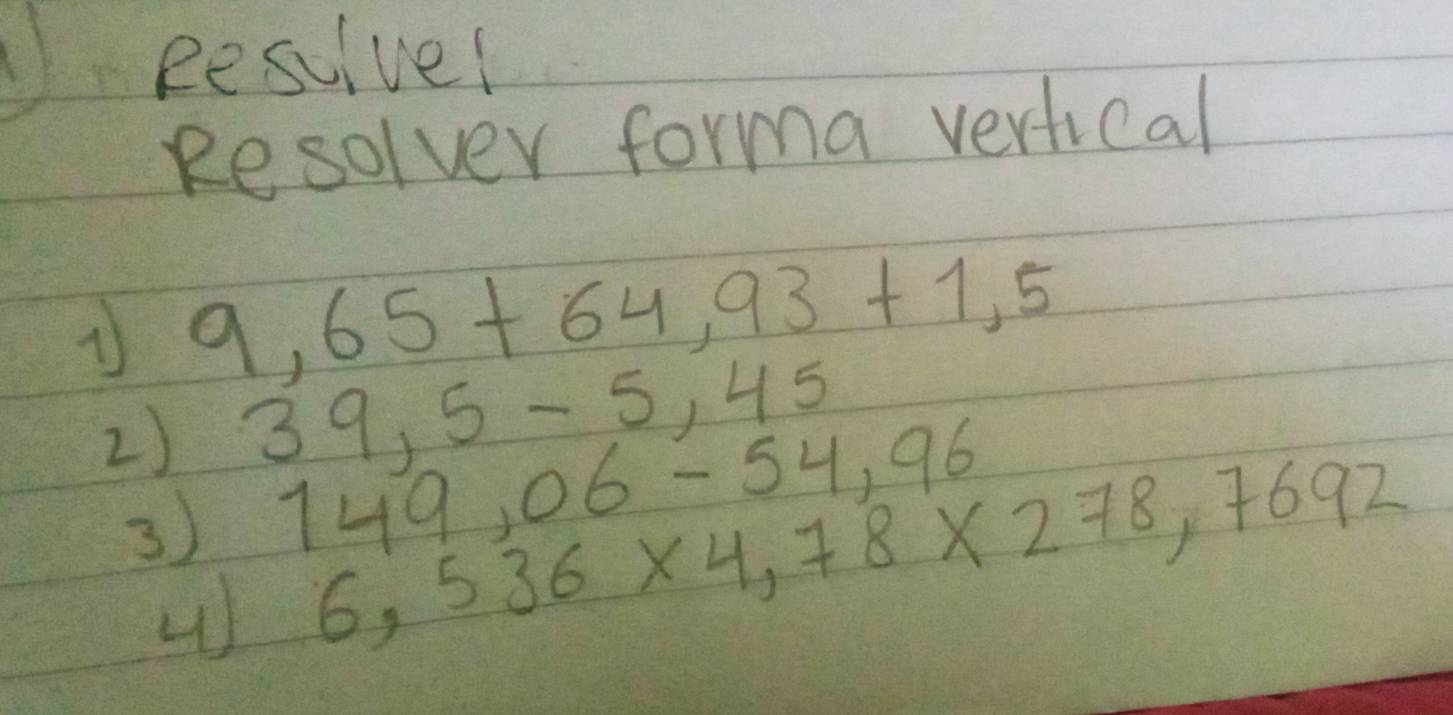 Resolver
Resolver forma vertical
1) 9,65 + 64,93 + 1,5
2) 39,5 - 5,45
3) 149,06 - 54,96
4) 6,536 x 4,78 x 278,7692